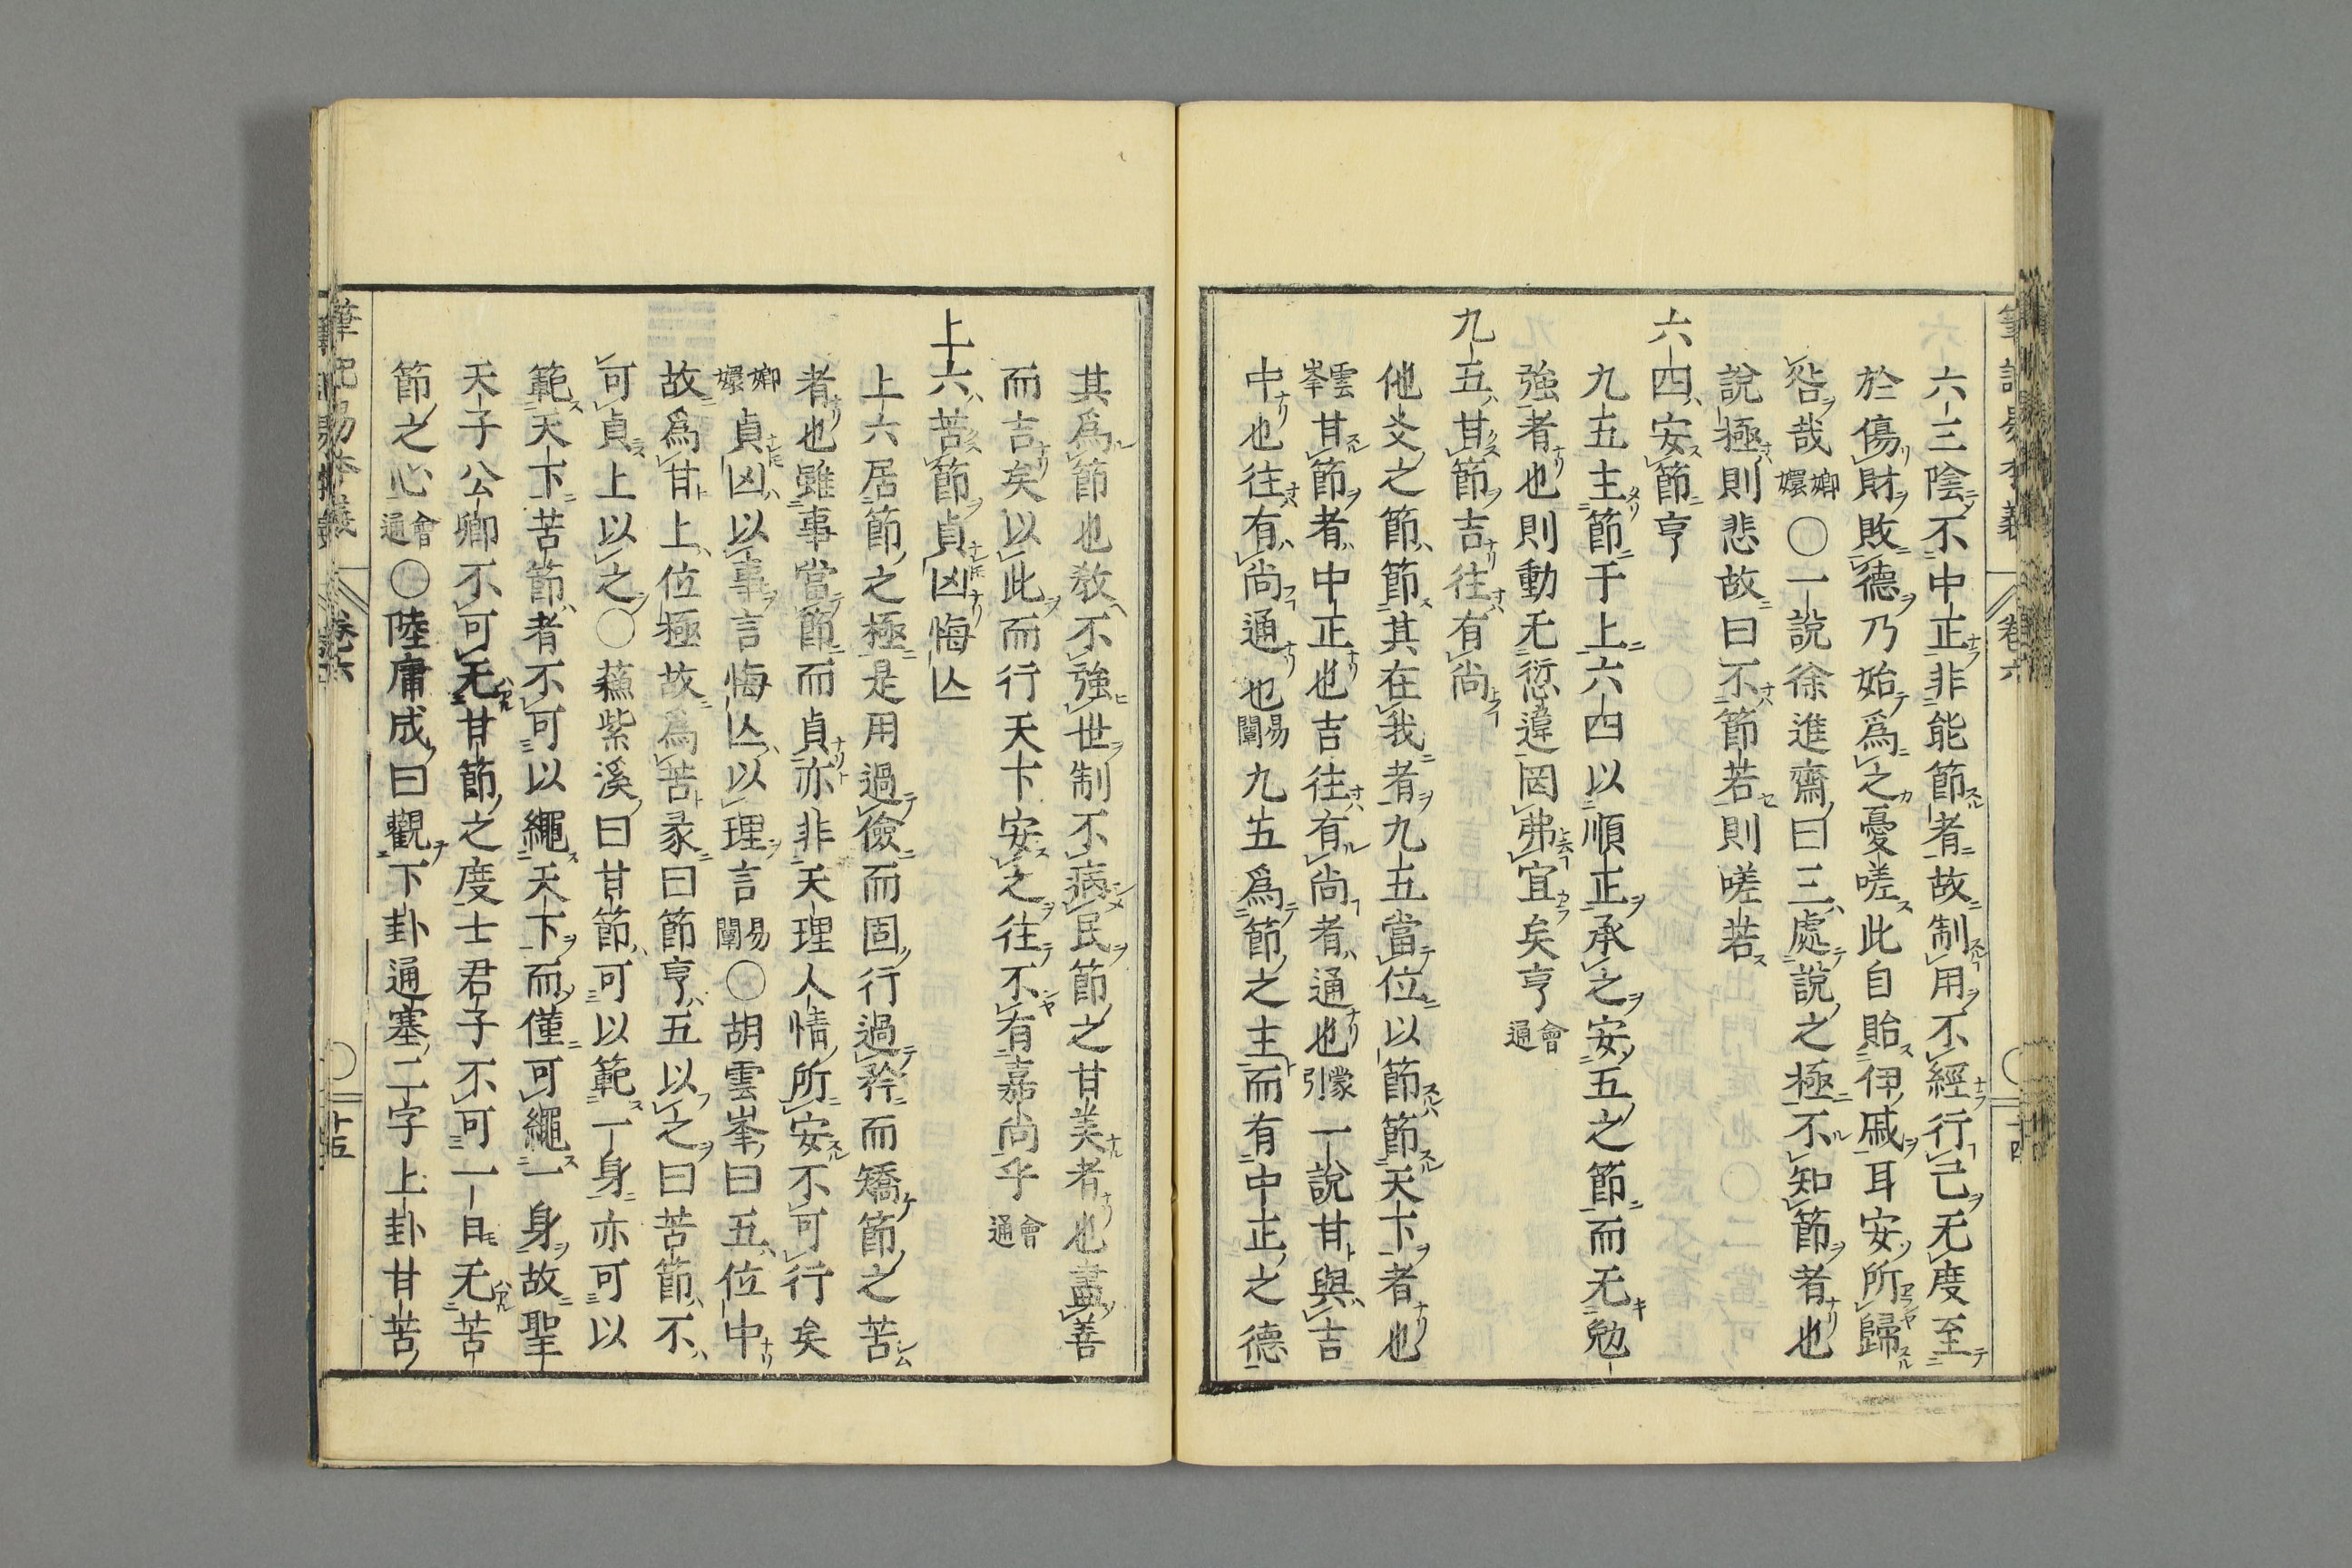 六三陰不中正非能節者故制用不經行己无度至
於傷財敗德乃始爲之憂嗟此自貽伊戚耳安所歸
咎哉嫏嬛〇一說徐進齋曰三處說之極不知節者也
說極則悲故曰不節若則嗟若
六四安節亨
九五主節于上六四以順正承之安五之節而无勉
強者也則動无愆違罔弗宜矣亨會通
九五甘節吉往有尚
他爻之節節其在我者九五當位以節節天下者也
雲峯甘節者中正也吉往有尚者通也蒙引一說甘與吉
中也往有尚通也易闡九五爲節之主而有中正之德
其爲節也教不強世制不病民節之甘美者也盡善
而吉矣以此而行天下安之往不有嘉尚乎會通
上六苦節貞凶悔亡
上六居節之極是用過儉而固行過矜而矯節之苦
者也雖事當節而貞亦非天理人情所安不可行矣
嫏嬛貞凶以事言悔亡以理言易闡〇胡雲峯曰五位中
故爲甘上位極故爲苦彖曰節亨五以之曰苦節不
可貞上以之〇蘇紫溪曰甘節可以範一身亦可以
範天下苦節者不可以繩天下而僅可繩一身故聖
天子公卿不可无甘節之度士君子不可一日无苦
節之心會通〇陸庸成曰觀下卦通塞二字上卦甘苦